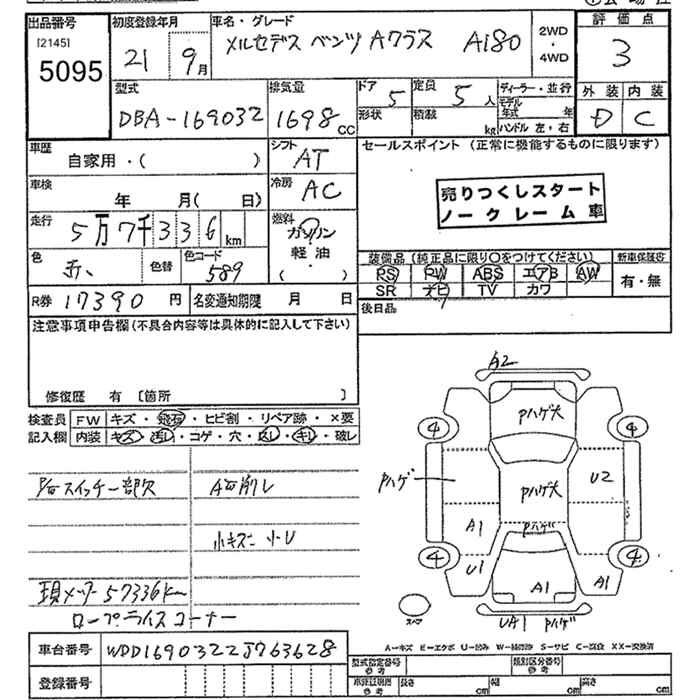 出品番号
[2145]
5095
初度登録年月
21 9月
車名・グレード
メルセデス ベンツ Aクラス A180
2WD
・
4WD
評価点
3
外装 内装
D C
型式
DBA-169032
排気量
1698 CC
ドア 5
形状
定員 5人
積載 kg
ディーラー・並行
モデル年式 年
ハンドル 左・右
車歴
自家用・( )
シフト AT
車検 年 月( 日)
冷房 AC
走行 5万7千336km
燃料
ガソリン
軽油
( )
色
色替
色コード 589
R券 17390円
名変通知期限 月 日
セールスポイント (正常に機能するものに限ります)
売りつくしスタート
ノークレーム車
装備品(純正品に限り〇をつけてください)
新車保証書
PS PW ABS エアB AW
SR ナビ TV カワ
有・無
後日品
注意事項申告欄(不具合内容等は具体的に記入して下さい)
修復歴 有 〔箇所 〕
検査員 FW キズ・飛石・ヒビ割・リペア跡・×要
記入欄 内装 キズ・汚レ・コゲ・穴・スレ・キレ・破レ
スイッチ一部欠
小キズ 小U
現メーター57336km
ロープライスコーナー
車台番号 WDD1690322J763628
登録番号
A2
Pハゲ大
4
4
Pハゲ
Pハゲ大
U2
A1
Pハゲ
4
4
U1
A1
A1
スペア
UA1 Pハゲ
A=キズ E=エクボ U=凹み W=補修跡 S=サビ C=腐食 XX=交換済
型式指定番号
参考
類別区分番号
参考
参考
長さ cm
幅 cm
高さ cm